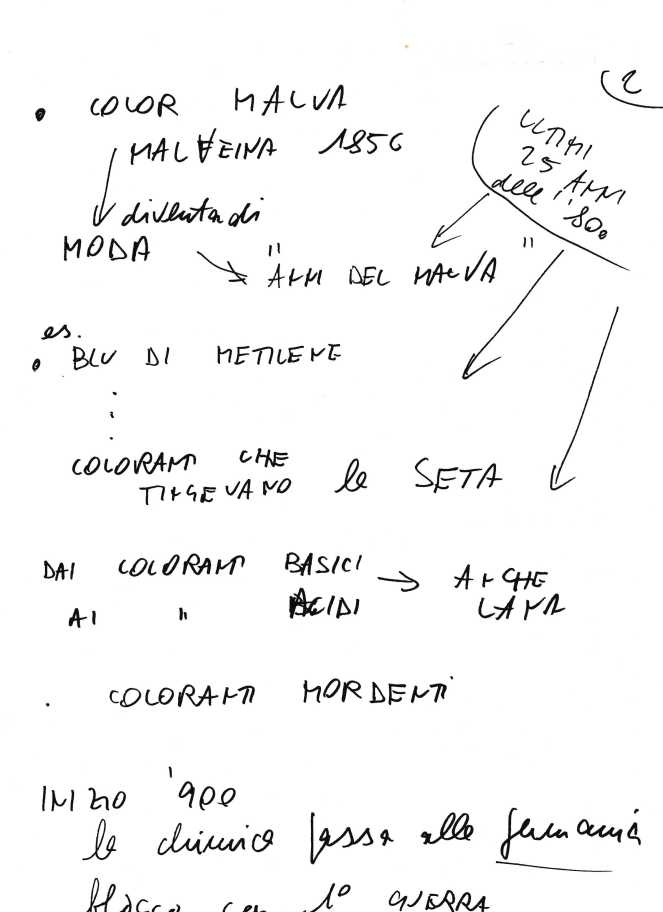 2
• COLOR MALVA
MALVEINA 1856
ULTIMI
25 ANNI
dell '800
diventa di
MODA
"ANNI DEL MALVA"
es.
• BLU DI METILENE
⋮
COLORANTI CHE
TINGEVANO la SETA
DAI COLORANTI BASICI → ANCHE
AI " ACIDI LANA
. COLORANTI MORDENTI
INIZIO '900
la chimica passa alla Germania
blocco con 1° GUERRA